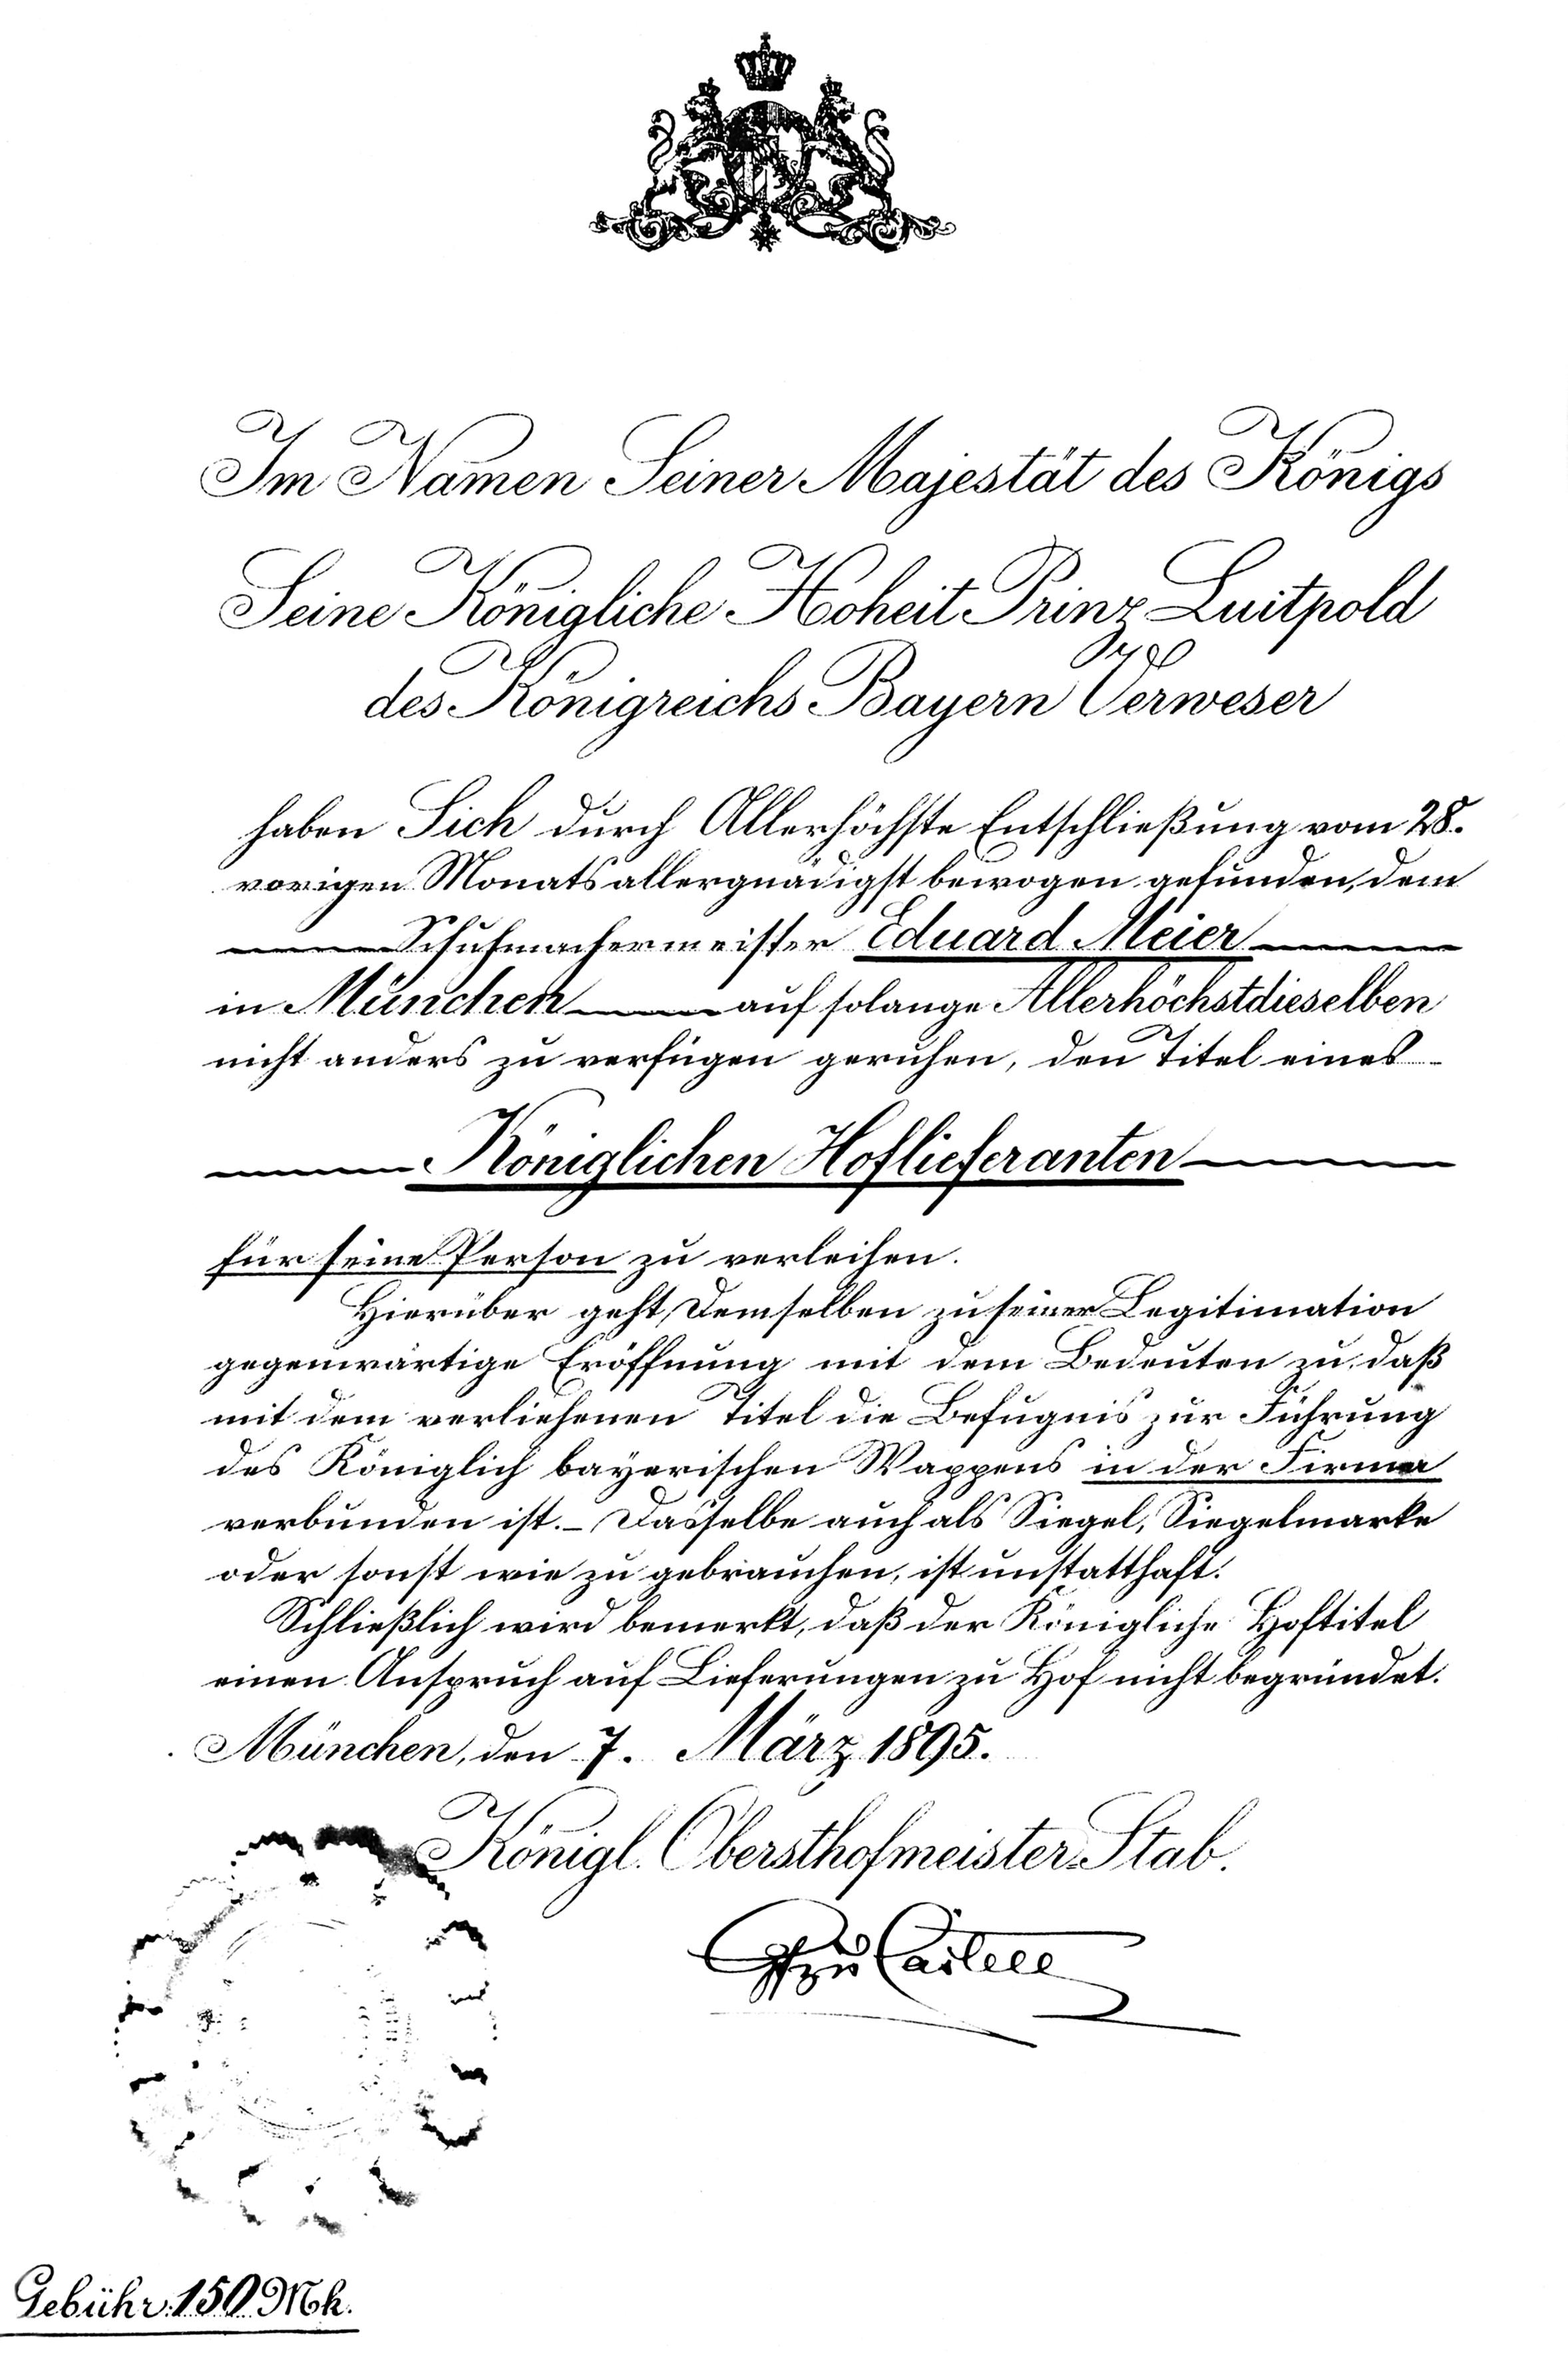 Im Namen Seiner Majestät des Königs
Seine Königliche Hoheit Prinz Luitpold
des Königreichs Bayern Verweser
haben Sich durch Allerhöchste Entschließung vom 28.
vorigen Monats allergnädigst bewogen gefunden, dem
Schuhmachermeister Eduard Meier
in München auf solange Allerhöchstdieselben
nicht anders zu verfügen geruhen, den Titel eines
Königlichen Hoflieferanten
für seine Person zu verleihen.
Hierüber geht Demselben zu seiner Legitimation
gegenwärtige Eröffnung mit dem Bedeuten zu, daß
mit dem verliehenen Titel die Befugnis zur Führung
des Königlich bayerischen Wappens in der Firma
verbunden ist. – Dasselbe auch als Siegel, Siegelmarke
oder sonst wie zu gebrauchen, ist unstatthaft.
Schließlich wird bemerkt, daß der Königliche Hoftitel
einen Anspruch auf Lieferungen zu Hof nicht begründet.
München, den 7. März 1895.
Königl. Obersthofmeister-Stab.
Gf zu Castell
Gebühr: 150 Mk.